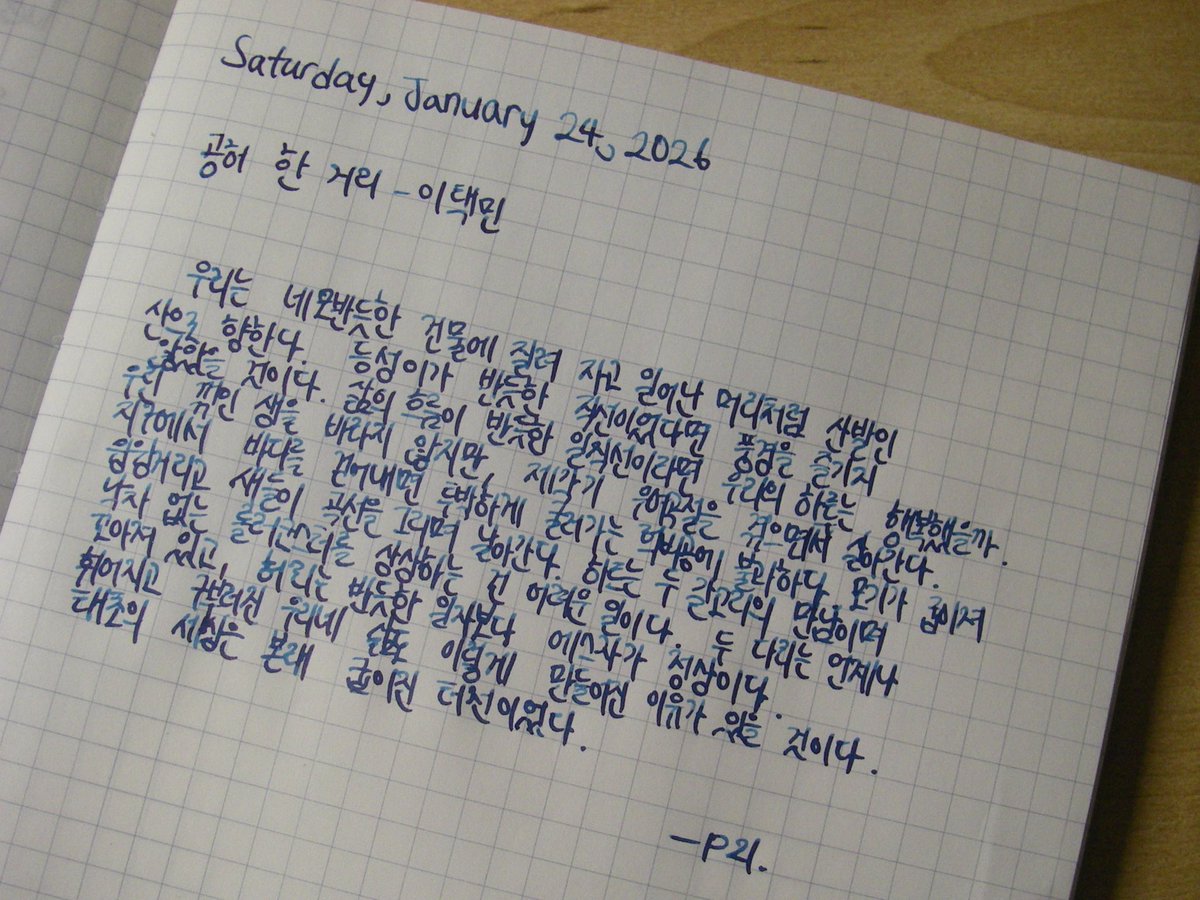 Saturday, January 24, 2026
공허 한 거리 - 이택민
우리는 네모반듯한 건물에 질려 자고 일어난 머리처럼 산발인
산으로 향한다. 능성이가 반듯한 직선이었다면 풍경을 즐기지
않았을 것이다. 삶의 흐름이 반듯한 일직선이라면 우리의 하루는 행복했을까.
우리 꺾인 생을 바라지 않지만, 제각기 우여곡절을 겪으면서 살아간다.
지구에서 바다를 걷어내면 투박하게 굴러가는 불과하다. 모기가 굽이져
윙윙거리고 새들이 곡선을 그리며 날아간다. 하트는 두 갈고리의 만남이며
낙차 없는 상상하는 건 어려운 일이다. 두 다리는 언제나
꼬아져 있고, 허리는 반듯한 일자보다 에스자가 정상이다.
휘어지고 구부러진 우리네 삶도 이렇게 만들어진 이유가 있을 것이다.
태초의 세상은 본래 굽이진 터전이었다.
-P21.